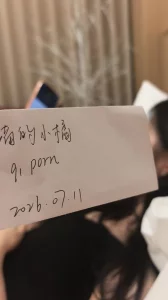 的小橘
91 porn
2026.07.11